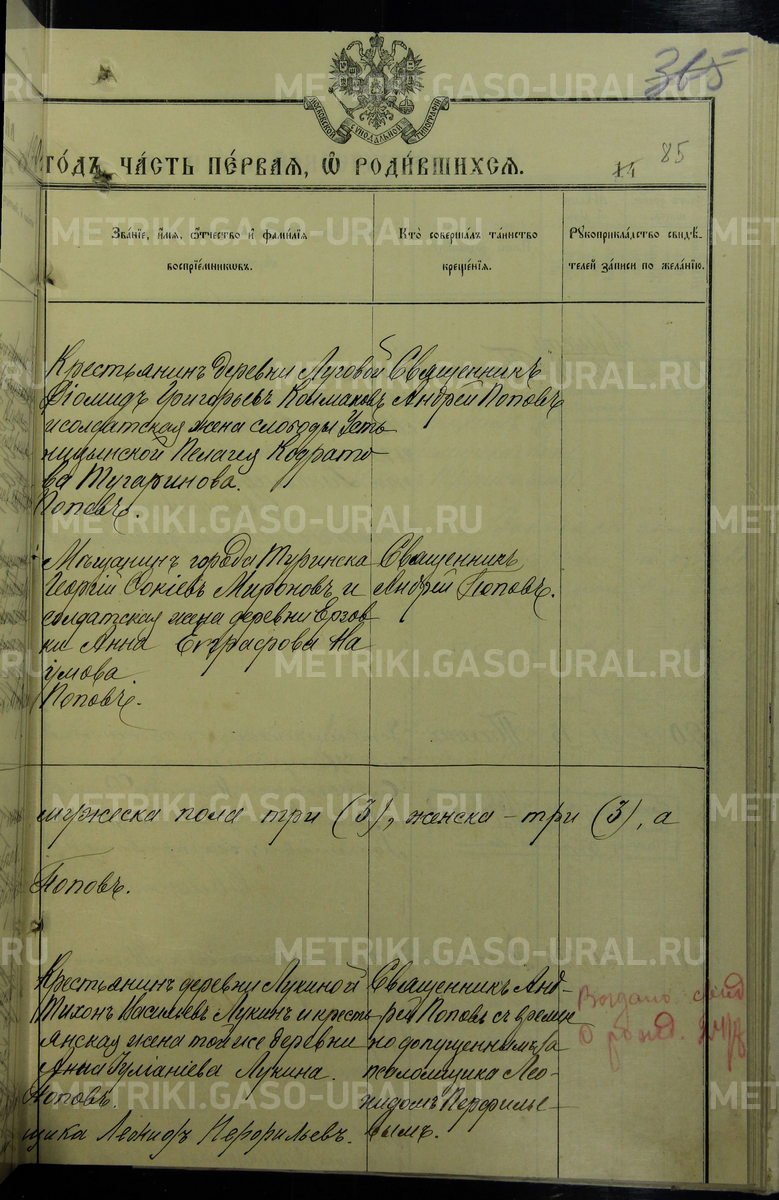 365
МОСКОВСКОЙ СѴНОДАЛЬНОЙ ТИПОГРАФІИ
ГО́ДЪ, ЧА́СТЬ ПЕ́РВАЯ, Ѡ РОДИ́ВШИХСЯ.
14 85
Зва́нїе, и́мя, ѻ́тчество и҆ фами́лїя
воспрїе́мникωвъ.
Кто̀ соверша́лъ та́инство
креще́нїя.
Рꙋкоприкла́дство свидѣ́-
телей за́писи по жела́нїю.
Крестьянинъ деревни Луговой
Діомидъ Григорьевъ Колмаковъ
и солдатская жена слободы Усть
ницынской Пелагея Кодрато
ва Тугаринова.
Поповъ.
Священникъ
Андрей Поповъ
Мѣщанинъ города Туринска
Георгій Сокіевъ Мироновъ и
солдатская жена деревни Ерзов
ки Анна Евграфова На
умова.
Поповъ.
Священникъ
Андрей Поповъ.
мужеска пола три (3), женска - три (3), а
Поповъ.
Крестьянинъ деревни Лукиной
Тихонъ Васильевъ Лукинъ и кресть
янская жена той же деревни
Анна Іуліаніева Лукина.
Поповъ.
щика Леонидъ Перфильевъ.
Священникъ Анд-
рей Поповъ съ времен
но допущеннымъ за
псаломщика Лео-
нидомъ Перфилье-
вымъ.
Выдано
METRIKI.GASO-URAL.RU